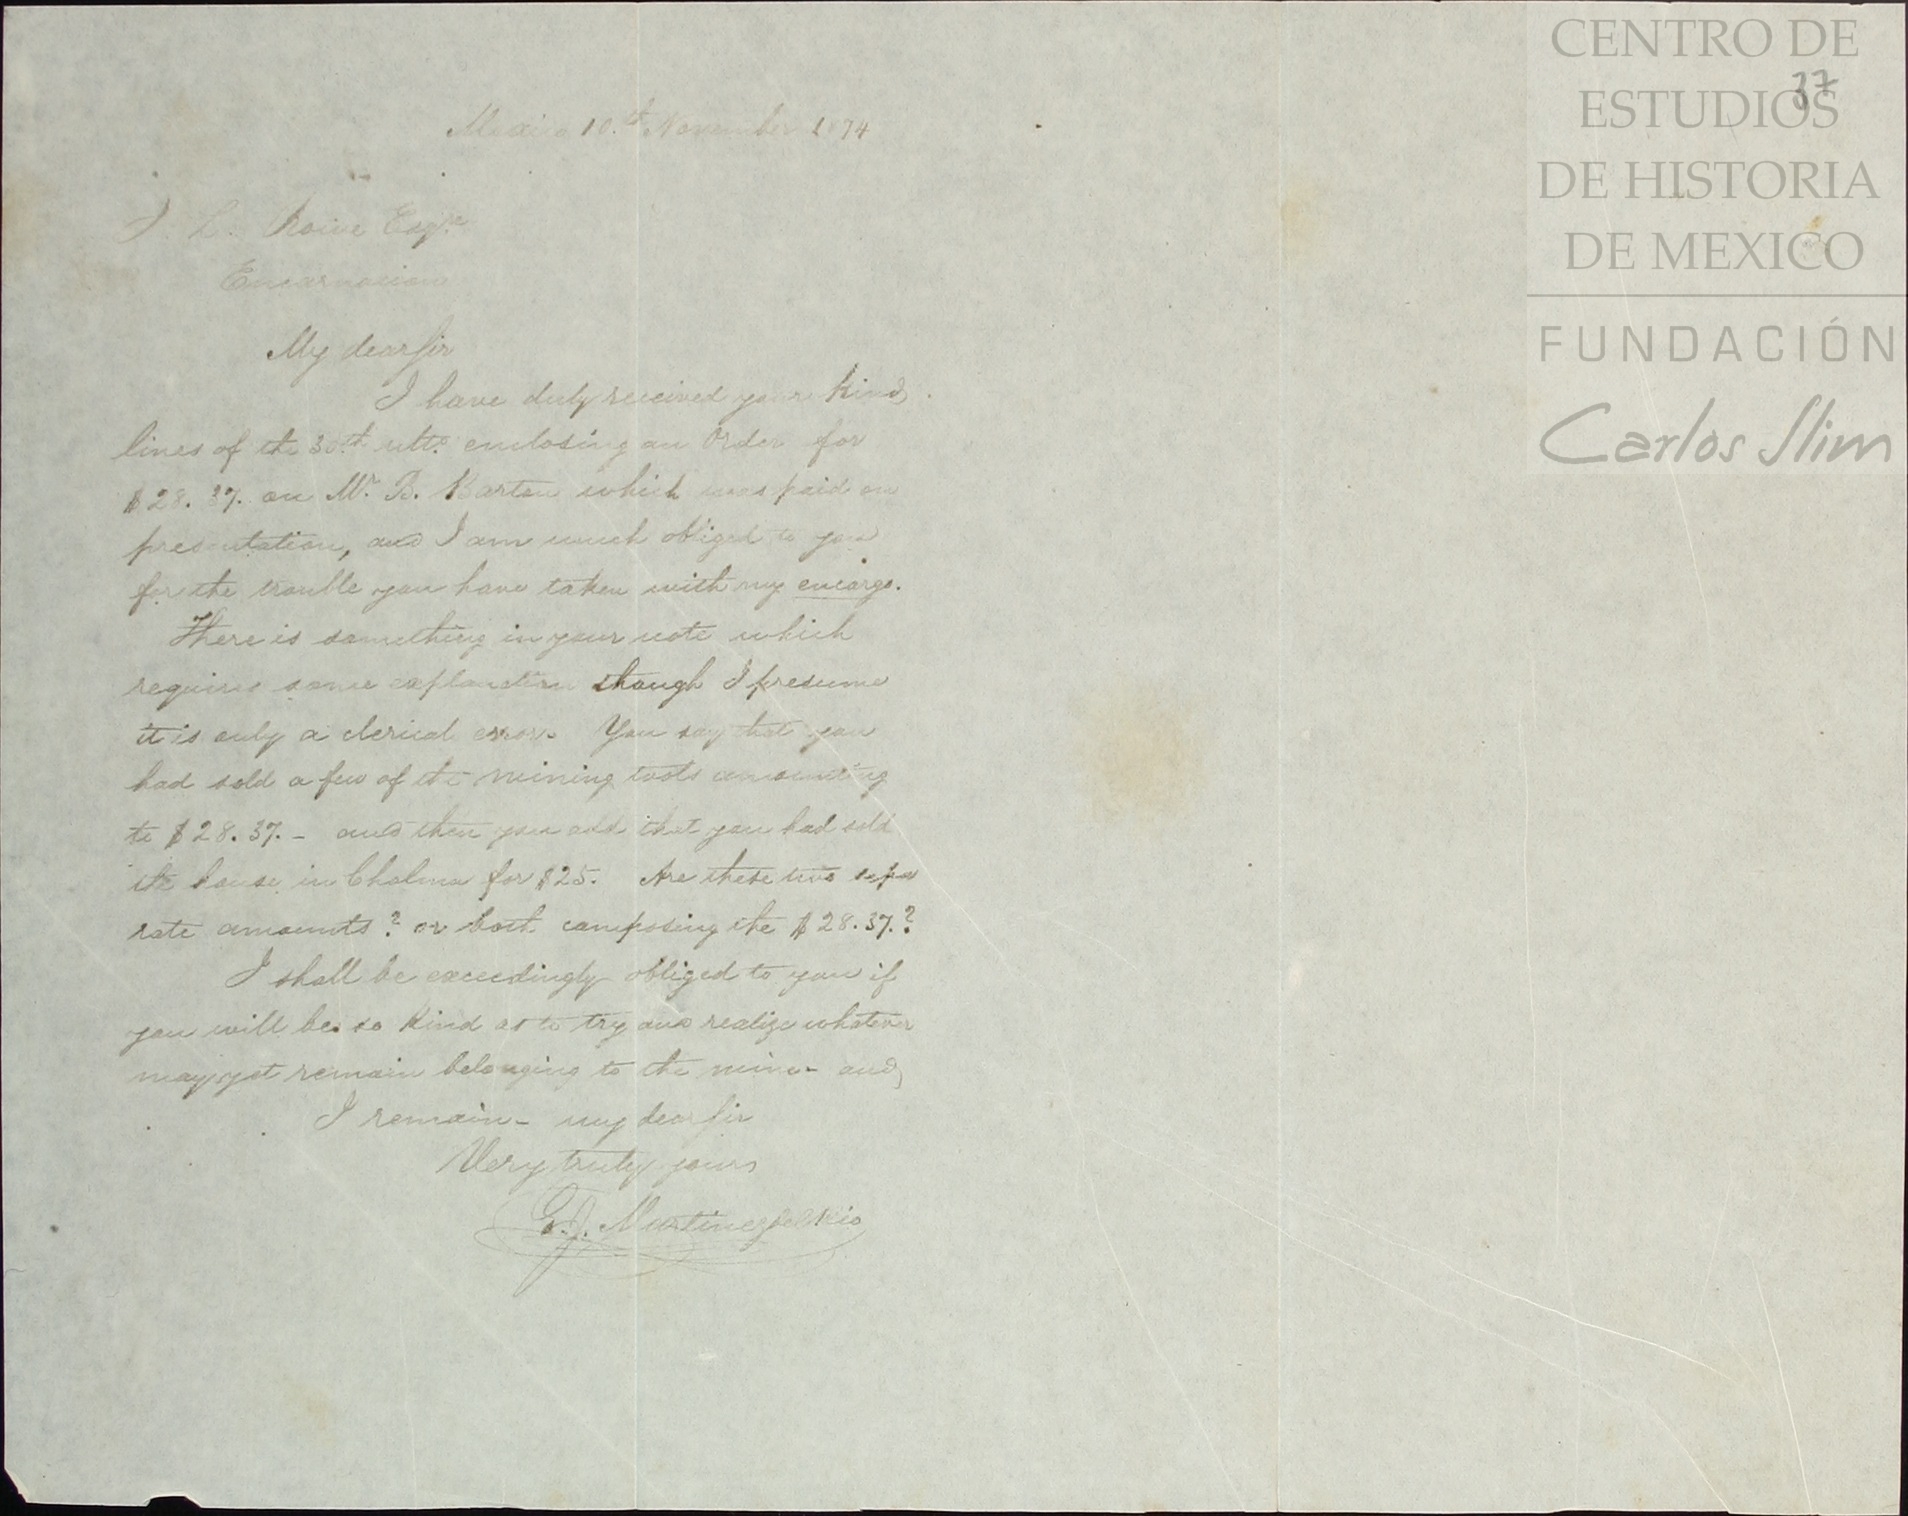 Mexico 10.th November 1874
Esqre
Encarnacion
My dear Sir
I have duly received your kind
lines of the 30th ulto. enclosing an Order for
$28.37. on Mr. B. Barton which was paid on
presentation, and I am much obliged to you
for the trouble you have taken with my encargo.
There is something in your note which
requires some explanation though I presume
it is only a clerical error. You say that you
had sold a few of the mining tools amounting
to $28.37. - and then you add that you had sold
the house in Cholma for $25. Are these two sepa
rate amounts? or both composing the $28.37.?
I shall be exceedingly obliged to you if
you will be so kind as to try and realize whatever
may yet remain belonging to the mine - and
I remain - my dear Sir
Very truly yours
Martinez del Rio
37
CENTRO DE
ESTUDIOS
DE HISTORIA
DE MEXICO
FUNDACIÓN
Carlos Slim